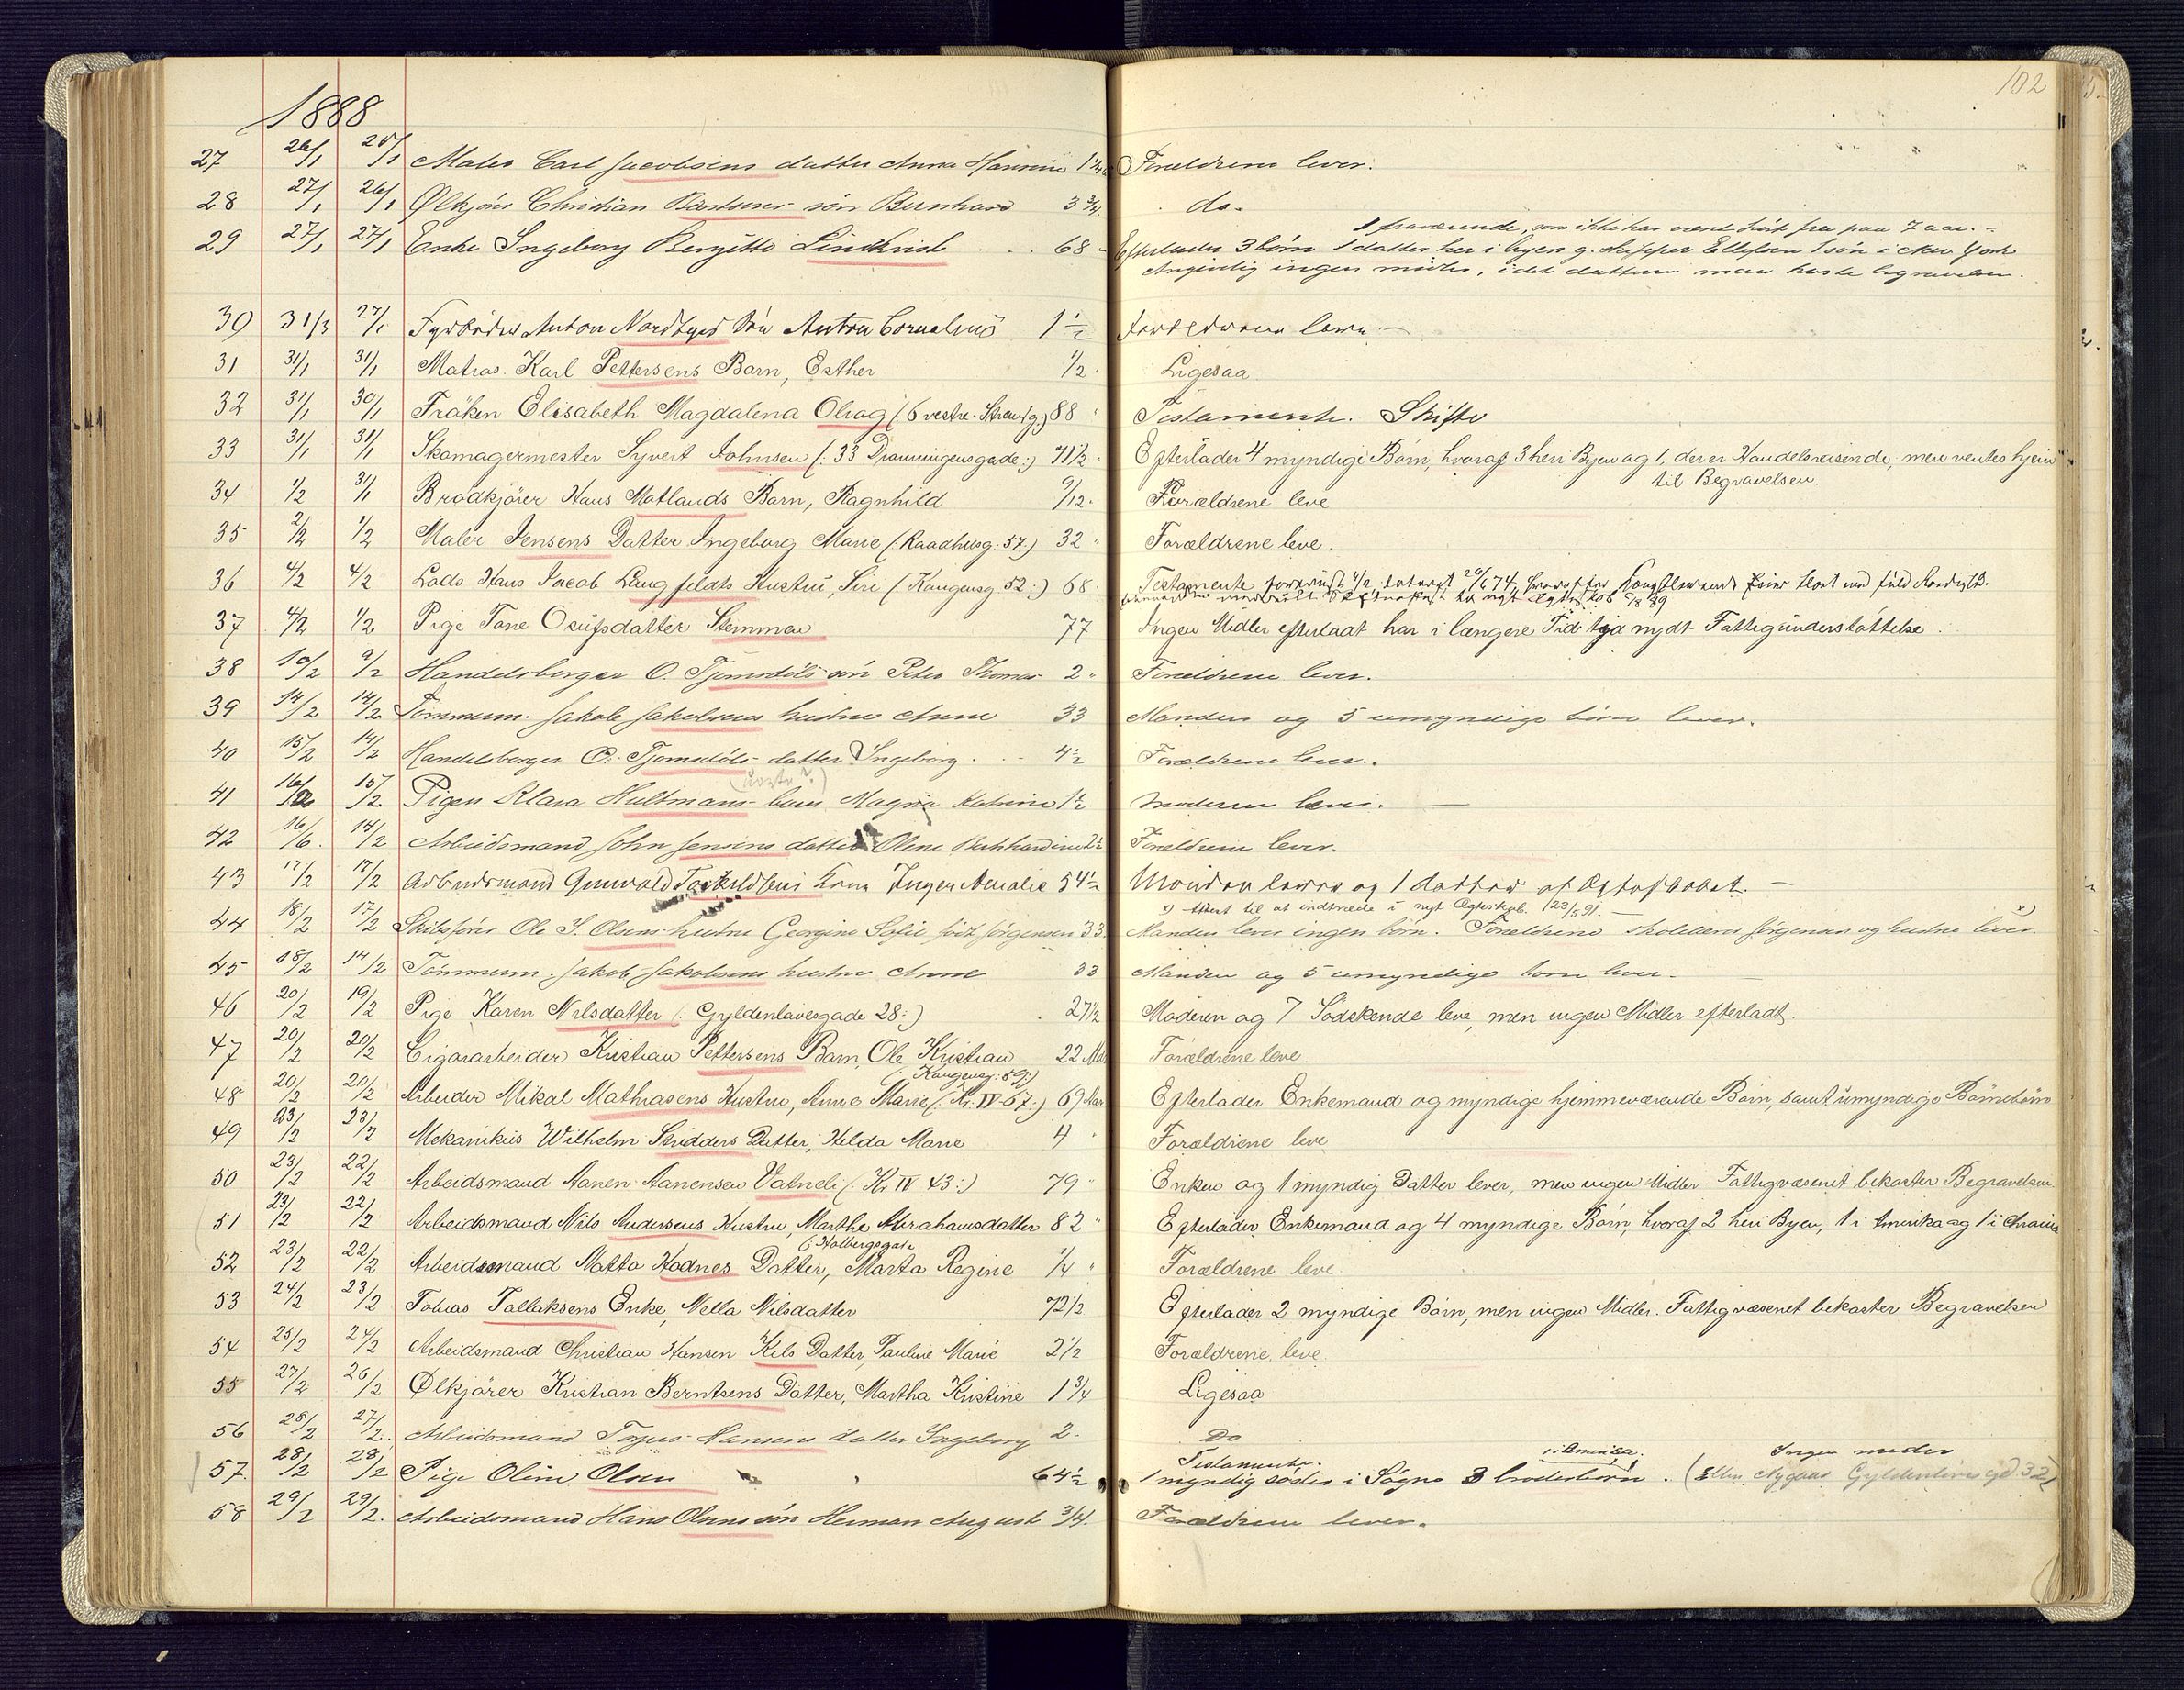 1888
102
27 26/1 25/1 Maler Carl Jacobsens datter Anna 1 Forældrene lever.
28 27/1 26/1 Ølkjörer Christian sön Bernhard 3 3/4 do.
1 fraværende, som ikke har været hört fra paa 7 aar.
29 27/1 27/1 Enke Ingeborg Bergitte Lindkvist 68 Efterlader 3 börn 1 datter her i byen g. Skipper Ellefsen 1 sön i New York
Angivelig ingen midler, idet datteren maa koste begravelsen.
30 31/3 27/1 Fyrböder Anton Nordbyes Sön Anton Cornelius 1 1/2 Forældrene lever.
31 31/1 31/1 Matros Karl Pettersens Barn, Esther 1/2 Ligesaa
32 31/1 30/1 Fröken Elisabeth Magdalena Olrog (: 6 vestre Strandg:) 88 " Testamente. Skifte
33 31/1 31/1 Skomagermester Syvert Johnsen (: 33 Dronningensgade:) 71 1/2 Efterlader 4 myndige Börn, hvoraf 3 her i Byen og 1, der er Handelsreisende, men ventes hjem
til Begravelsen.
34 1/2 31/1 Brödkjörer Hans Matlands Barn, Ragnhild 9/12 Forældrene leve
35 2/2 1/2 Maler Jensens Datter Ingeborg Marie (: Raadhusg: 57:) 32 " Forældrene leve.
36 4/2 4/2 Lods Hans Jacob Langfeldts Hustru, Siri (: Kongensg 52:) 68 Testamente 4/2 20/6 74,
5/8 89
37 4/2 1/2 Pige Tone Osufsdatter Stemmen 77 Ingen Midler efterladt har i længere Tid nydt Fattigunderstöttelse.
38 10/2 9/2 Handelsborger O. Tjomsdöls sön Peter Thomas 2 " Forældrene lever.
39 14/2 14/2 Tömmerm. Jakob Jakobsens hustru Anne 33 Manden og 5 umyndige börn lever.
40 15/2 14/2 Handelsborger O. Tjomsdöls datter Ingeborg 4 1/2 Forældrene lever.
41 16/2 15/2 Pigen Klara Hultmans barn Magna Katrine 1 1/2 Moderen lever.
42 16/6 14/2 Arbeidsmand John Jensens datter Olene Bernhardine 2 1/2 Forældrene lever.
43 17/2 17/2 Arbeidsmand Gunvald Torkildsens kone Inger Amalie 54 1/2 Manden lever og 1 datter af Ægteskabet.
x) attest til at indtræde i nyt Ægteskab. 23/5 91.
44 18/2 17/2 Skibsförer Ole J. Olsens hustru Georgine Sofie föd Jörgensen 33 Manden lever ingen börn. Forældrene Jörgensen og hustru lever. x)
45 18/2 14/2 Tömmerm. Jakob Jakobsens hustru Anne 33 Manden og 5 umyndige börn lever.
46 20/2 19/2 Pige Karen Nilsdatter (: Gyldenlövesgade 28:) 27 1/2 Moderen og 7 Södskende leve, men ingen Midler efterladt.
47 20/2 20/2 Cigararbeider Kristian Pettersens Barn, Ole Kristian 22 Mdr Forældrene leve.
(: Kongensg: 59:)
48 20/2 20/2 Arbeider Mikal Mathiasens Hustru, Anne Marie (: Kr. IV 67:) 69 Aar Efterlader Enkemand og myndige hjemmeværende Börn, samt umyndige Börnebörn
49 23/2 23/2 Mekanikus Wilhelm Skidders Datter, Helda Marie 4 " Forældrene leve
50 23/2 22/2 Arbeidsmand Aanen Aanensen Vatneli (: Kr IV 43:) 79 " Enken og 1 myndig Datter lever, men ingen Midler. Fattigvæsenet bekoster Begravelsen
51 23/2 22/2 Arbeidsmand Nils Andersens Hustru, Marthe Abrahamsdatter 82 " Efterlader Enkemand og 4 myndige Börn, hvoraf 2 her i Byen, 1 i Amerika og 1 i
(: Holbergsgate
52 23/2 22/2 Arbeidsmand Matta Hodnes Datter, Marta Regine 1/4 " Forældrene leve
53 24/2 23/2 Tobias Tallaksens Enke, Nella Nilsdatter 72 1/2 Efterlader 2 myndige Börn, men ingen Midler. Fattigvæsenet bekoster Begravelsen
54 25/2 24/2 Arbeidsmand Christian Hansen Kils Datter Pauline Marie 2 1/2 Forældrene leve.
55 27/2 26/2 Ølkjörer Kristian Berntsens Datter, Martha Kristine 1 3/4 Ligesaa
56 28/2 27/2 Arbeidsmand Torjus Hansens datter Ingeborg 2 Do
Testamente. i Amerika. Ingen midler
57 28/2 28/2 Pige Oline Olsen 64 1/2 1 myndig söster i Sögne 3 broderbörn. (Ellen Nygaard Gyldenlöves gd 32)
58 29/2 29/2 Arbeidsmand Hans Olsens sön Herman August 3/4 Forældrene lever.